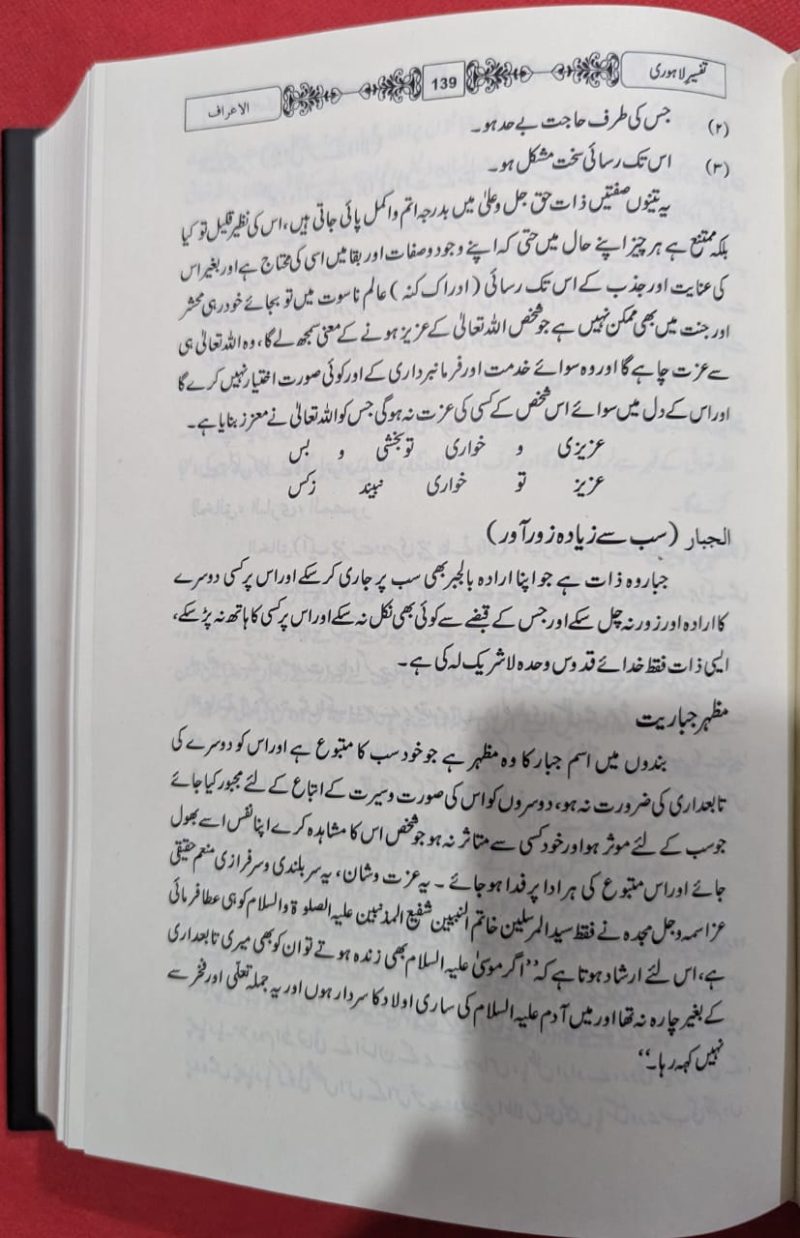 تفسیر لاہوری
139
الاعراف
(۲) جس کی طرف حاجت بے حد ہو۔
(۳) اس تک رسائی سخت مشکل ہو۔
یہ تینوں صفتیں ذات حق جل وعلیٰ میں بدرجہ اتم واکمل پائی جاتی ہیں، اس کی نظیر قلیل تو کیا
بلکہ ممتنع ہے ہر چیز اپنے حال میں حتی کہ اپنے وجود وصفات اور بقا میں اسی کی محتاج ہے اور بغیر اس
کی عنایت اور جذب کے اس تک رسائی (ادراک کنہ) عالم ناسوت میں تو بجائے خود رہی محشر
اور جنت میں بھی ممکن نہیں ہے جو شخص اللہ تعالیٰ کے عزیز ہونے کے معنی سمجھ لے گا، وہ اللہ تعالیٰ ہی
سے عزت چاہے گا اور وہ سوائے خدمت اور فرمانبرداری کے اور کوئی صورت اختیار نہیں کرے گا
اور اس کے دل میں سوائے اس شخص کے کسی کی عزت نہ ہوگی جس کو اللہ تعالیٰ نے معزز بنایا ہے۔
عزیزی و خواری تو بخشی و بس
عزیز تو خواری نبیند زکس
الجبار (سب سے زیادہ زور آور)
جبار وہ ذات ہے جو اپنا ارادہ بالجبر بھی سب پر جاری کر سکے اور اس پر کسی دوسرے
کا ارادہ اور زور نہ چل سکے اور جس کے قبضے سے کوئی بھی نکل نہ سکے اور اس پر کسی کا ہاتھ نہ پڑ سکے،
ایسی ذات فقط خدائے قدوس وحدہ لا شریک لہ کی ہے۔
مظہر جباریت
بندوں میں اسم جبار کا وہ مظہر ہے جو خود سب کا متبوع ہے اور اس کو دوسرے کی
تابعداری کی ضرورت نہ ہو، دوسروں کو اس کی صورت وسیرت کے اتباع کے لئے مجبور کیا جائے
جو سب کے لئے موثر ہو اور خود کسی سے متاثر نہ ہو جو شخص اس کا مشاہدہ کرے اپنا نفس اسے بھول
جائے اور اس متبوع کی ہر ادا پر فدا ہو جائے ۔ یہ عزت وشان، یہ سر بلندی وسرفرازی منعم حقیقی
عز اسمہ وجل مجدہ نے فقط سید المرسلین خاتم النبیین شفیع المذنبین علیہ الصلوۃ والسلام کو ہی عطا فرمائی
ہے، اس لئے ارشاد ہوتا ہے کہ ’’اگر موسیٰ علیہ السلام بھی زندہ ہوتے تو ان کو بھی میری تابعداری
کے بغیر چارہ نہ تھا اور میں آدم علیہ السلام کی ساری اولاد کا سردار ہوں اور یہ جملہ تعلّی اور فخر سے
نہیں کہہ رہا۔‘‘